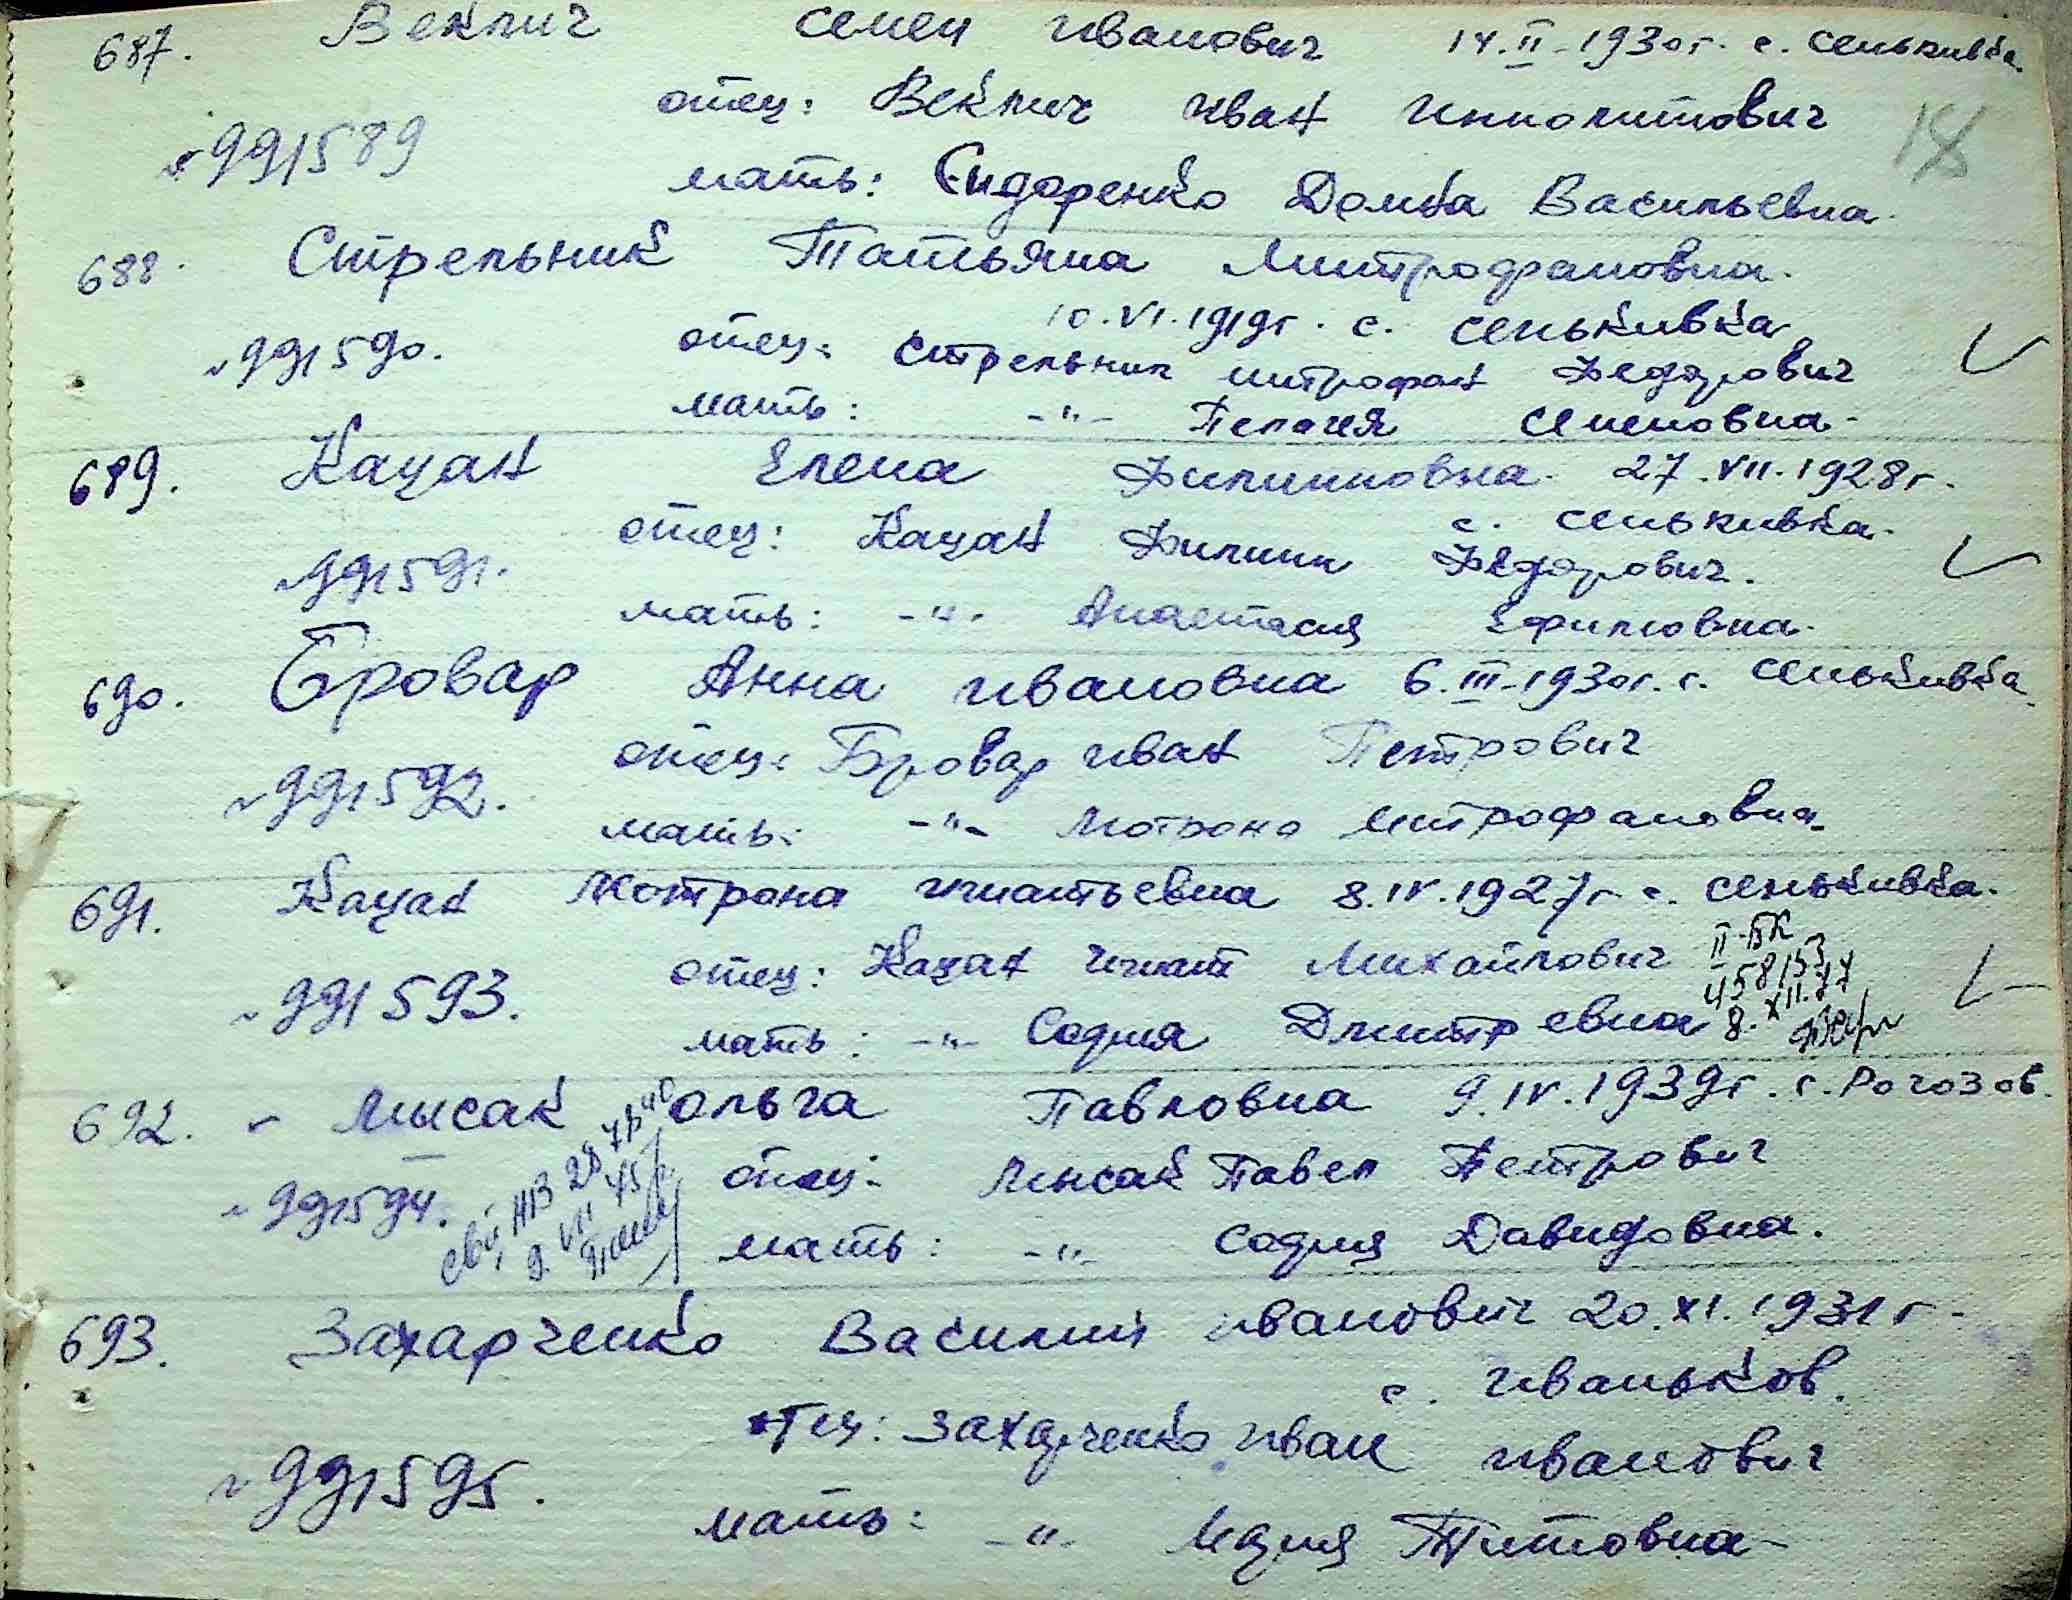 687. Веклич Семен Иванович 14.II-1930г. с. Сенькивка.
отец: Веклич Иван Ипполитович
18
№991589
мать: Сидоренко Домка Васильевна.
688. Стрельник Татьяна Митрофановна.
10.VI.1919г. с. Сенькивка
№991590. отец: Стрельник Митрофан Федорович
мать: -"- Пелагея Семеновна.
689. Кацан Елена Филипповна. 27.VII.1928г.
с. Сенькивка.
отец: Кацан Филипп Федорович.
№991591.
мать: -"- Анастасия Ефимовна.
690. Бровар Анна Ивановна 6.III-1930г. с. Сенькивка.
отец: Бровар Иван Петрович
№991592.
мать: -"- Мотрона Митрофановна.
691. Кацан Мотрона Игнатьевна 8.IV.1927г. с. Сенькивка.
отец: Кацан Игнат Михайлович
II-БК
458153
8.XII.77
№991593.
мать: -"- София Дмитревна
692. Мысак Ольга Павловна 9.IV.1939г. с. Рогозов.
отец: Мысак Павел Петрович
№991594.
мать: -"- София Давидовна.
693. Захарченко Василий Иванович 20.XI.1931г.
с. Иваньков.
отец: Захарченко Иван Иванович
№991595.
мать: -"- Титовна